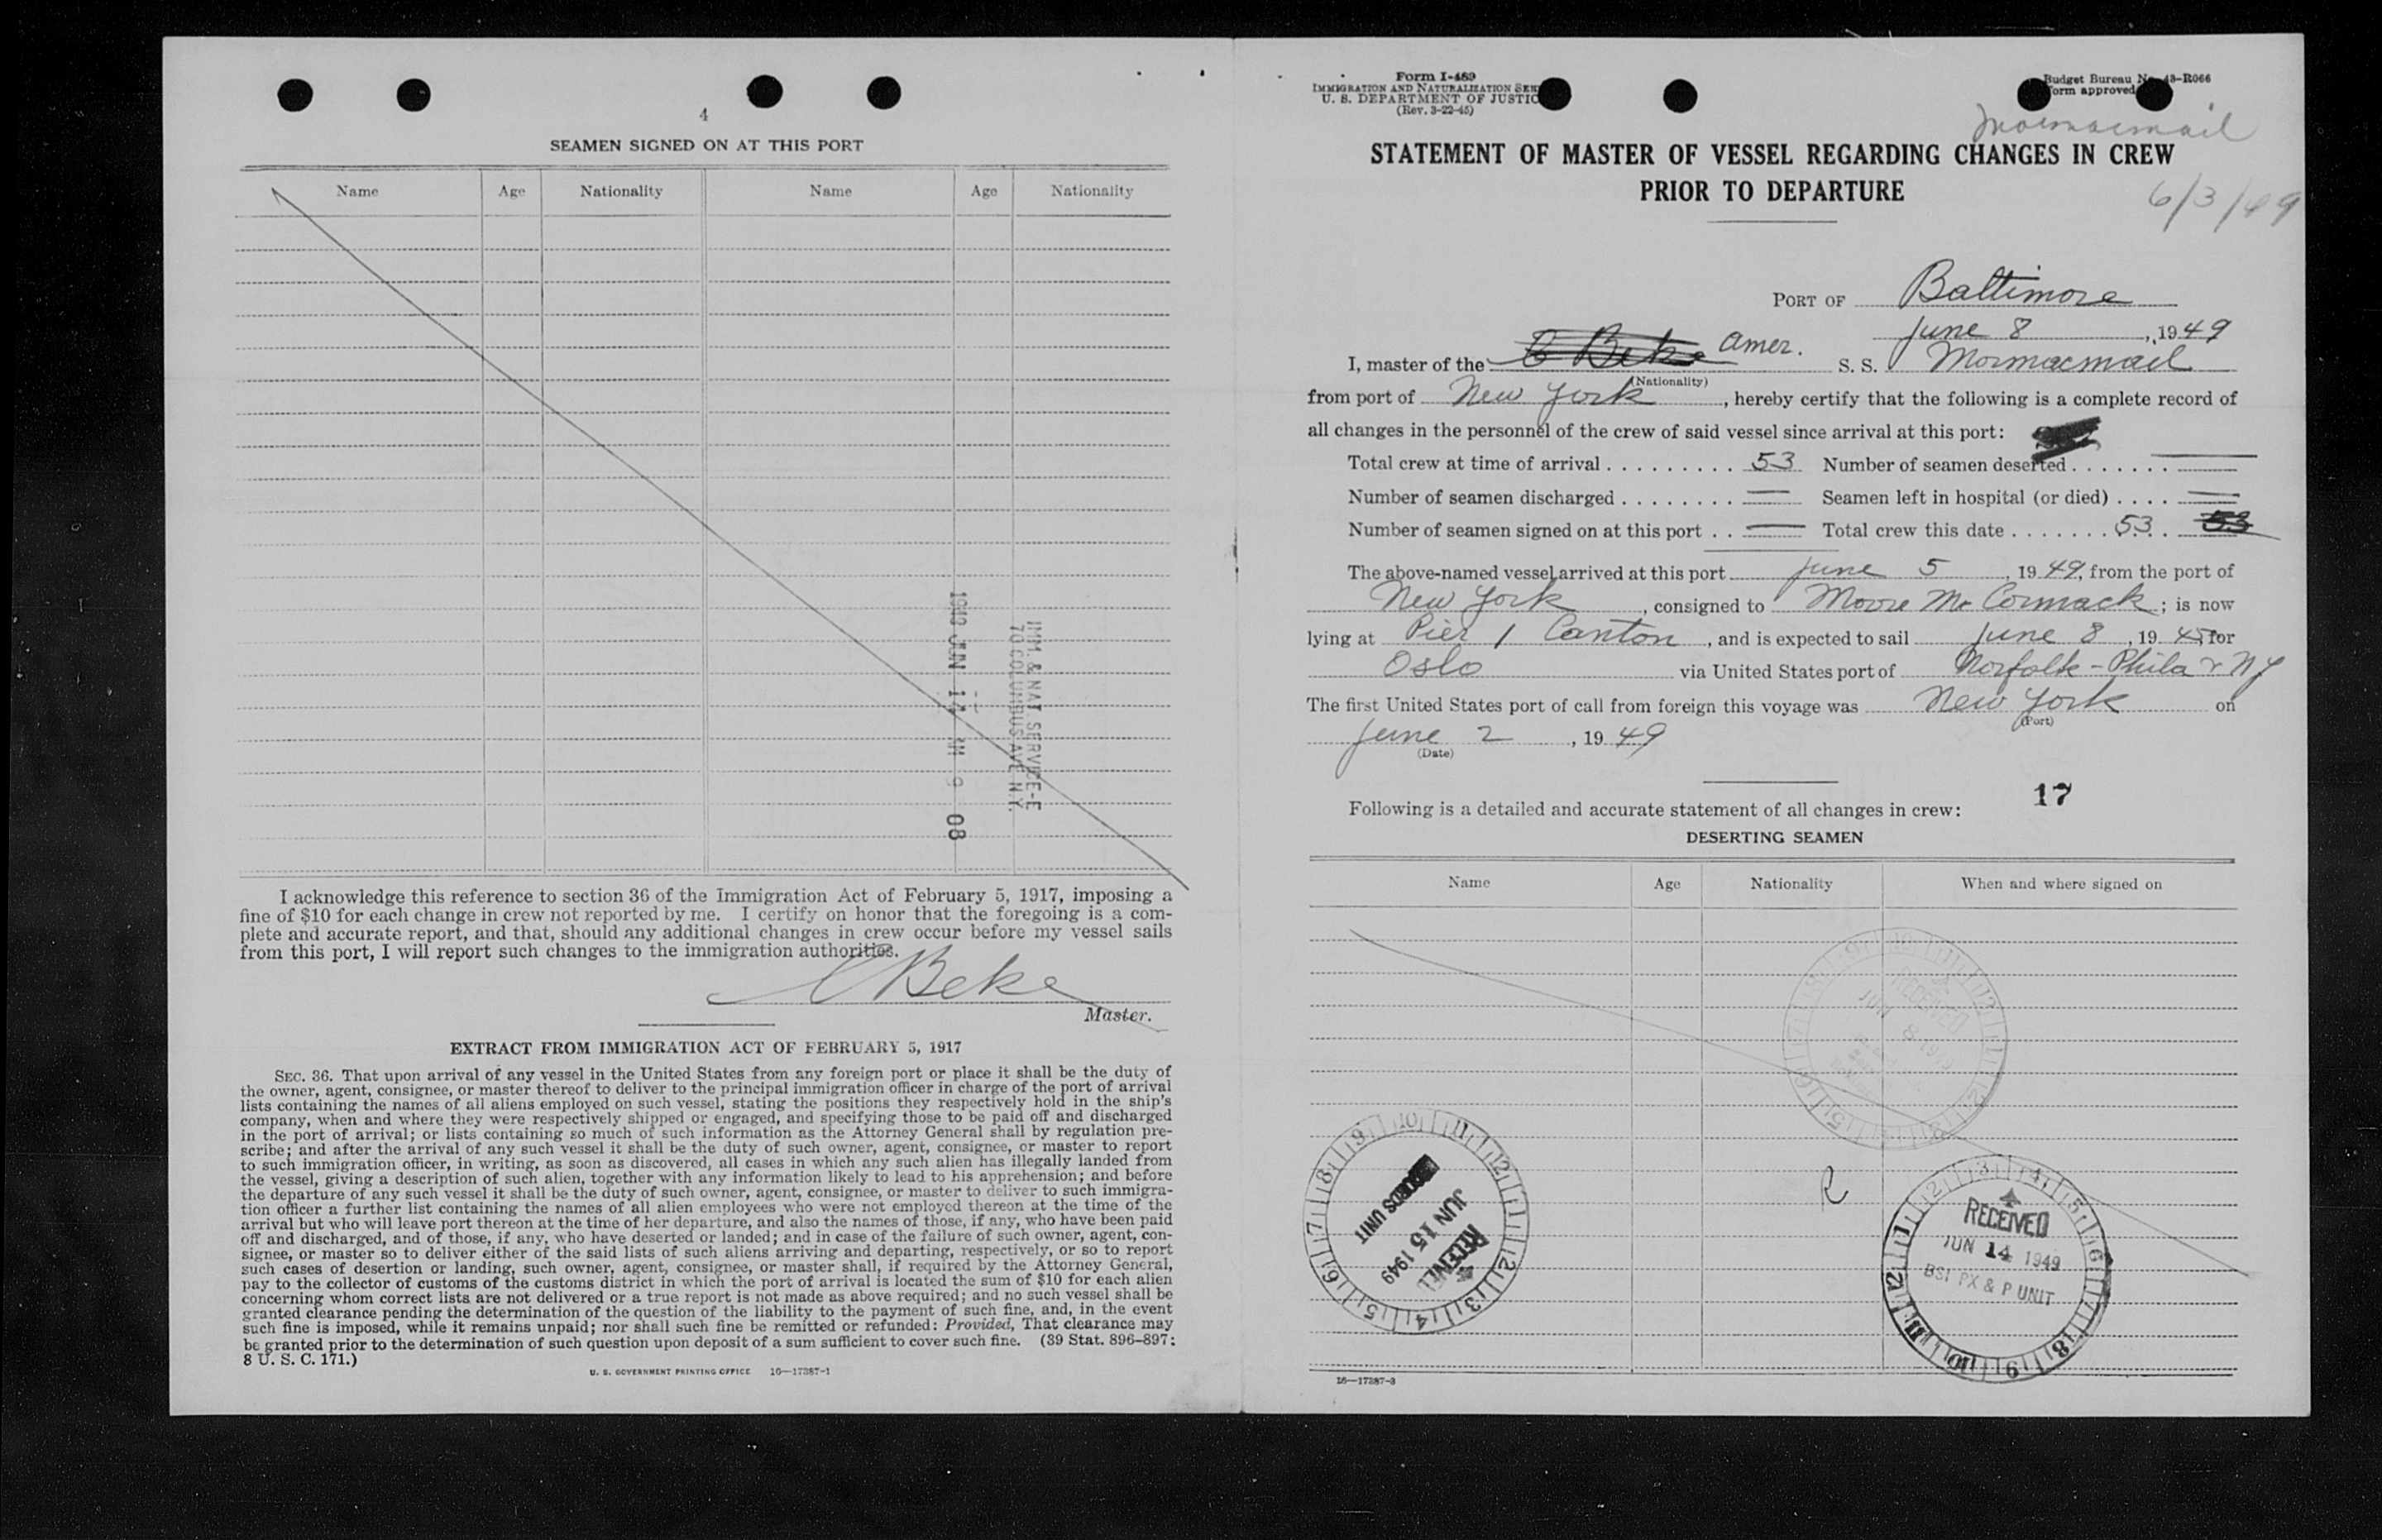 4
SEAMEN SIGNED ON AT THIS PORT
Name Age Nationality Name Age Nationality
IMM. & NAT. SERVICE-E
70 COLUMBUS AVE. N.Y.
JUN 14 9 08
I acknowledge this reference to section 36 of the Immigration Act of February 5, 1917, imposing a
fine of $10 for each change in crew not reported by me. I certify on honor that the foregoing is a com-
plete and accurate report, and that, should any additional changes in crew occur before my vessel sails
from this port, I will report such changes to the immigration authorities.
C Beke
Master.
EXTRACT FROM IMMIGRATION ACT OF FEBRUARY 5, 1917
SEC. 36. That upon arrival of any vessel in the United States from any foreign port or place it shall be the duty of
the owner, agent, consignee, or master thereof to deliver to the principal immigration officer in charge of the port of arrival
lists containing the names of all aliens employed on such vessel, stating the positions they respectively hold in the ship's
company, when and where they were respectively shipped or engaged, and specifying those to be paid off and discharged
in the port of arrival; or lists containing so much of such information as the Attorney General shall by regulation pre-
scribe; and after the arrival of any such vessel it shall be the duty of such owner, agent, consignee, or master to report
to such immigration officer, in writing, as soon as discovered, all cases in which any such alien has illegally landed from
the vessel, giving a description of such alien, together with any information likely to lead to his apprehension; and before
the departure of any such vessel it shall be the duty of such owner, agent, consignee, or master to deliver to such immigra-
tion officer a further list containing the names of all alien employees who were not employed thereon at the time of the
arrival but who will leave port thereon at the time of her departure, and also the names of those, if any, who have been paid
off and discharged, and of those, if any, who have deserted or landed; and in case of the failure of such owner, agent, con-
signee, or master so to deliver either of the said lists of such aliens arriving and departing, respectively, or so to report
such cases of desertion or landing, such owner, agent, consignee, or master shall, if required by the Attorney General,
pay to the collector of customs of the customs district in which the port of arrival is located the sum of $10 for each alien
concerning whom correct lists are not delivered or a true report is not made as above required; and no such vessel shall be
granted clearance pending the determination of the question of the liability to the payment of such fine, and, in the event
such fine is imposed, while it remains unpaid; nor shall such fine be remitted or refunded: Provided, That clearance may
be granted prior to the determination of such question upon deposit of a sum sufficient to cover such fine. (39 Stat. 896-897;
8 U. S. C. 171.)
U. S. GOVERNMENT PRINTING OFFICE 16—17387-1
Form I-489
IMMIGRATION AND NATURALIZATION SER
U. S. DEPARTMENT OF JUSTIC
(Rev. 3-22-45)
Budget Bureau No. 43-R066
Form approved
Mormacmail
STATEMENT OF MASTER OF VESSEL REGARDING CHANGES IN CREW
PRIOR TO DEPARTURE
6/3/49
PORT OF Baltimore
June 8, 1949
I, master of the C Beke Amer. S. S. Mormacmail
(Nationality)
from port of New York, hereby certify that the following is a complete record of
all changes in the personnel of the crew of said vessel since arrival at this port:
Total crew at time of arrival 53 Number of seamen deserted —
Number of seamen discharged — Seamen left in hospital (or died) —
Number of seamen signed on at this port — Total crew this date 53 53
The above-named vessel arrived at this port June 5, 1949, from the port of
New York, consigned to Moore McCormack; is now
lying at Pier 1 Canton, and is expected to sail June 8, 19 for
Oslo via United States port of Norfolk - Phila & NY
The first United States port of call from foreign this voyage was New York on
(Port)
June 2, 1949
(Date)
17
Following is a detailed and accurate statement of all changes in crew:
DESERTING SEAMEN
Name Age Nationality When and where signed on
RECEIVED
JUN 8 1949
RECORDS UNIT
JUN 15 1949
RECEIVED
R
RECEIVED
JUN 14 1949
BSI PX & P UNIT
16—17387-3